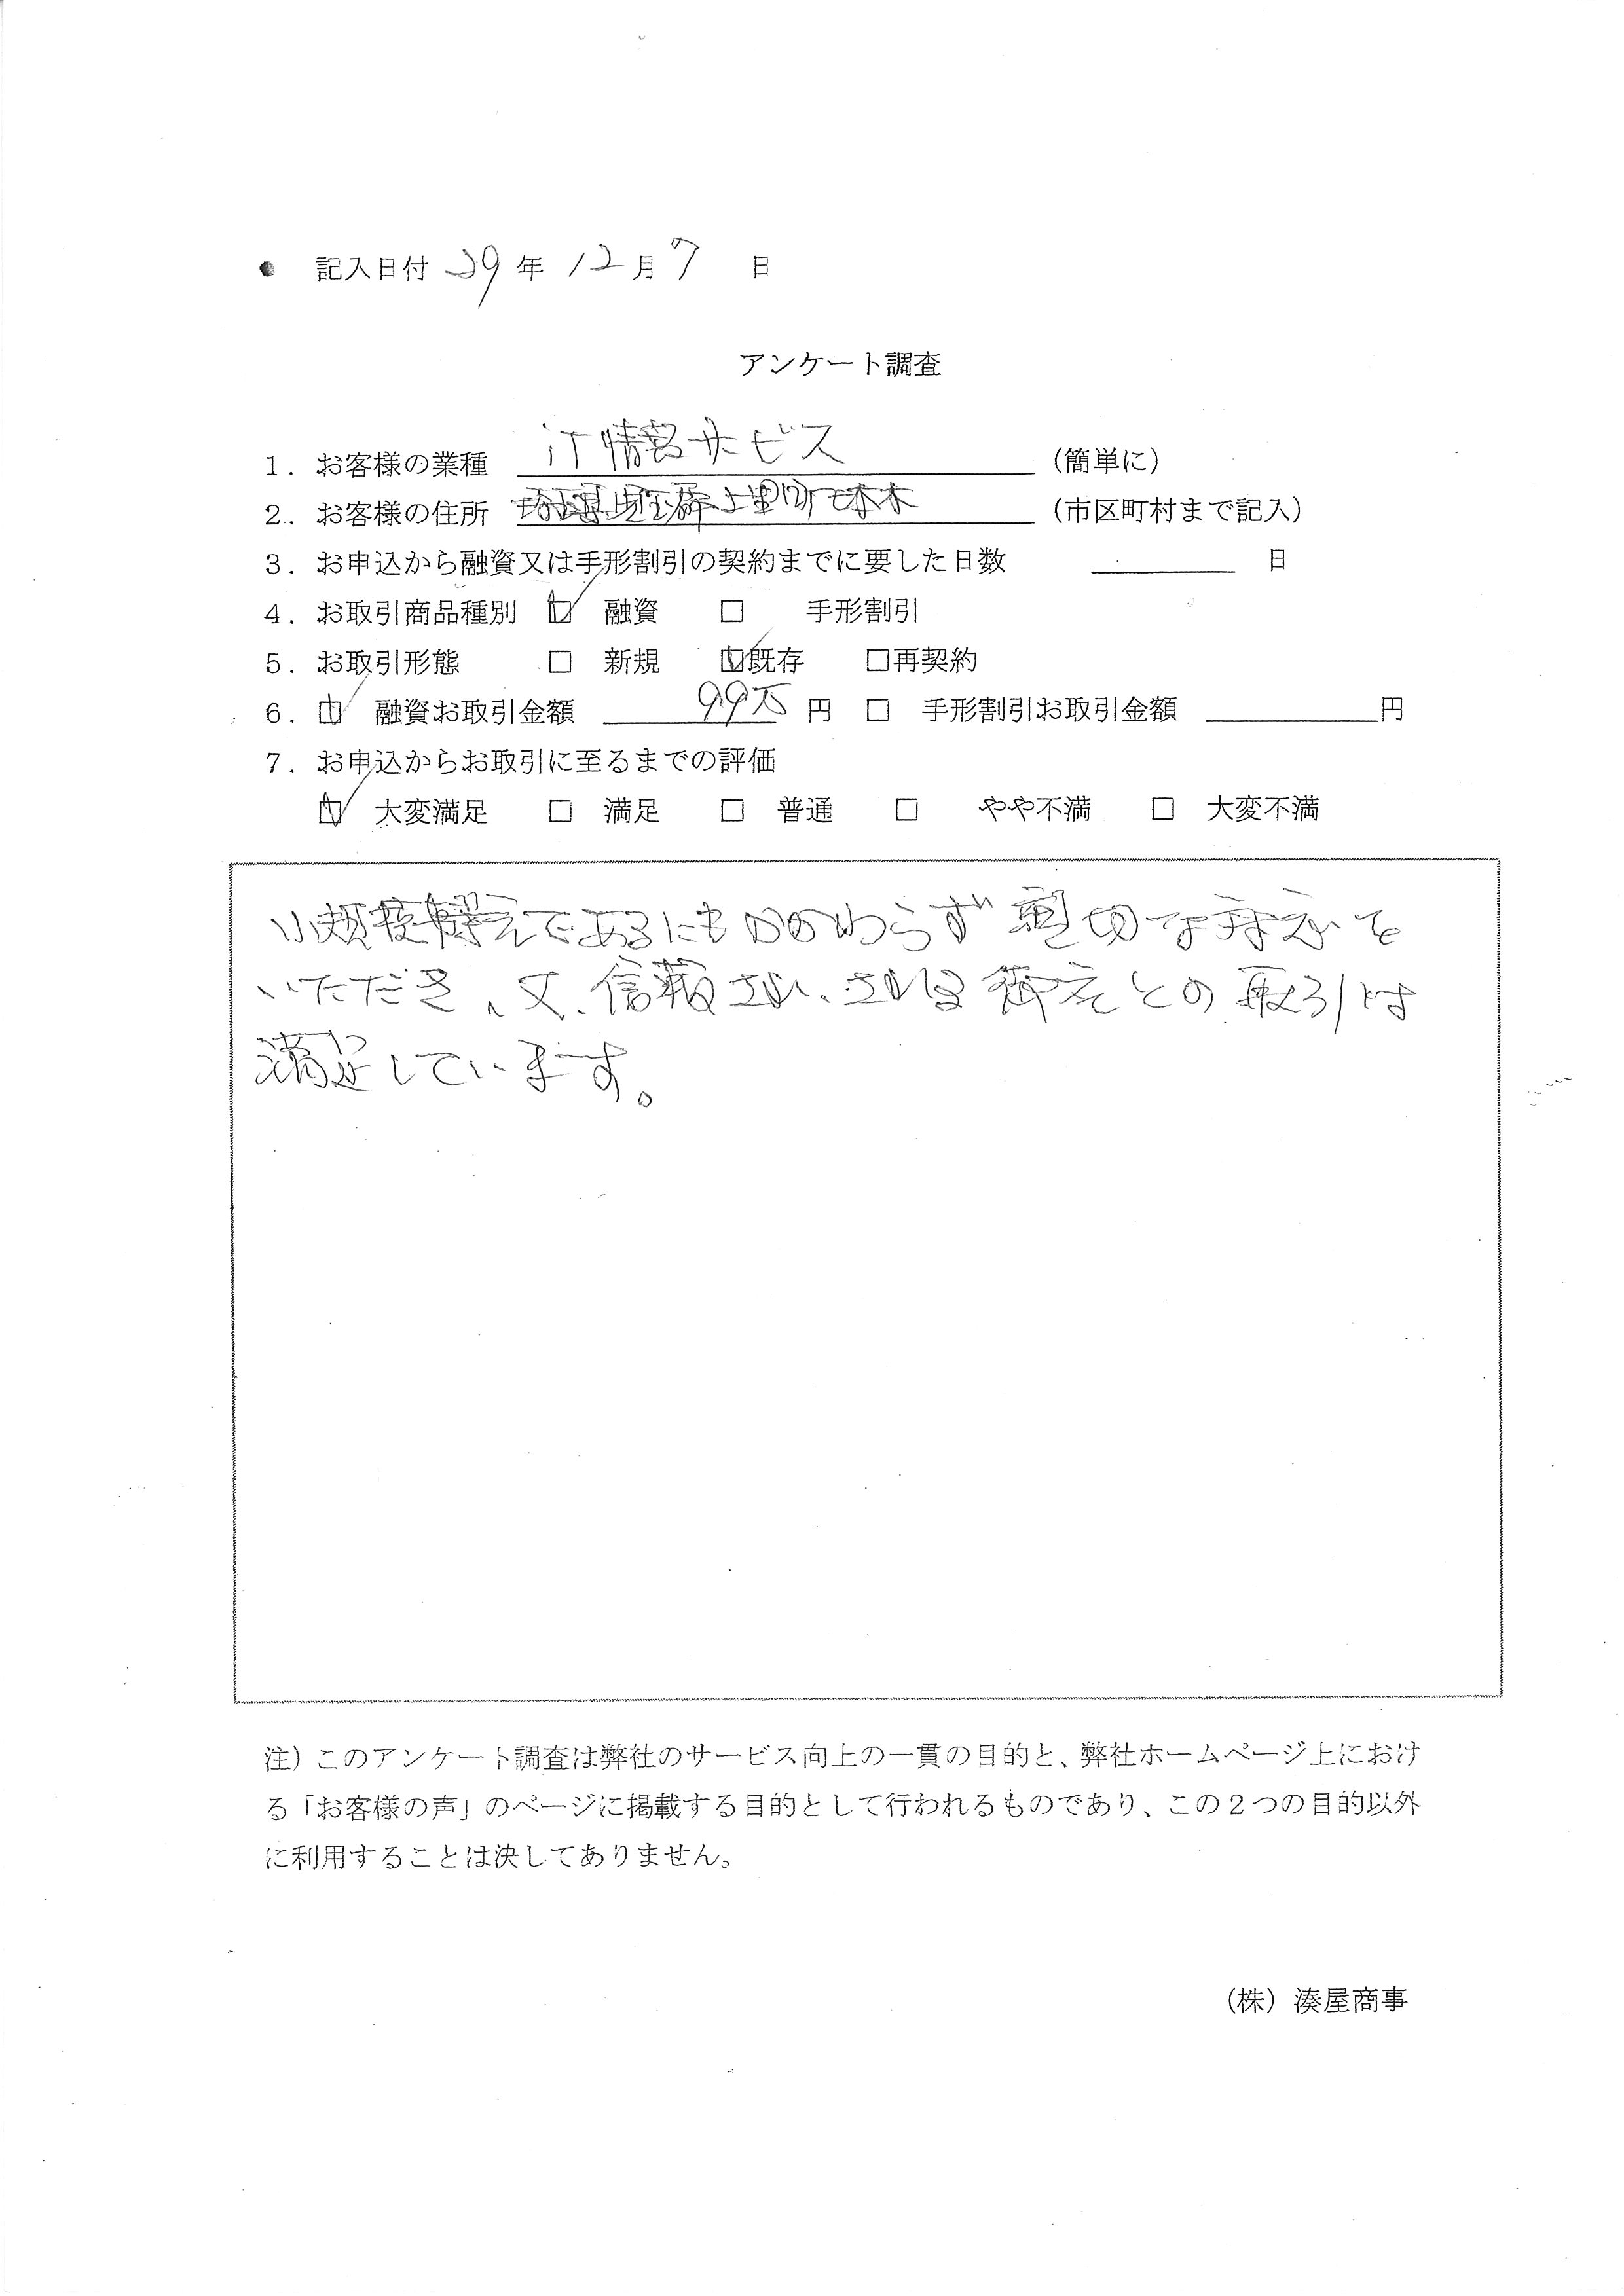 ● 記入日付 29年 12月7 日
アンケート調査
1. お客様の業種 iT情報サービス (簡単に)
2. お客様の住所 埼玉県児玉郡上里町七本木 (市区町村まで記入)
3. お申込から融資又は手形割引の契約までに要した日数 日
4. お取引商品種別 ☑ 融資 □ 手形割引
5. お取引形態 □ 新規 ☑既存 □再契約
6. ☑ 融資お取引金額 99万 円 □ 手形割引お取引金額 円
7. お申込からお取引に至るまでの評価
☑ 大変満足 □ 満足 □ 普通 □ やや不満 □ 大変不満
であるにもかかわらず親切な対応を
いただき、又、信頼され、との取引は
満足しています。
注)このアンケート調査は弊社のサービス向上の一貫の目的と、弊社ホームページ上におけ
る「お客様の声」のページに掲載する目的として行われるものであり、この2つの目的以外
に利用することは決してありません。
(株)湊屋商事